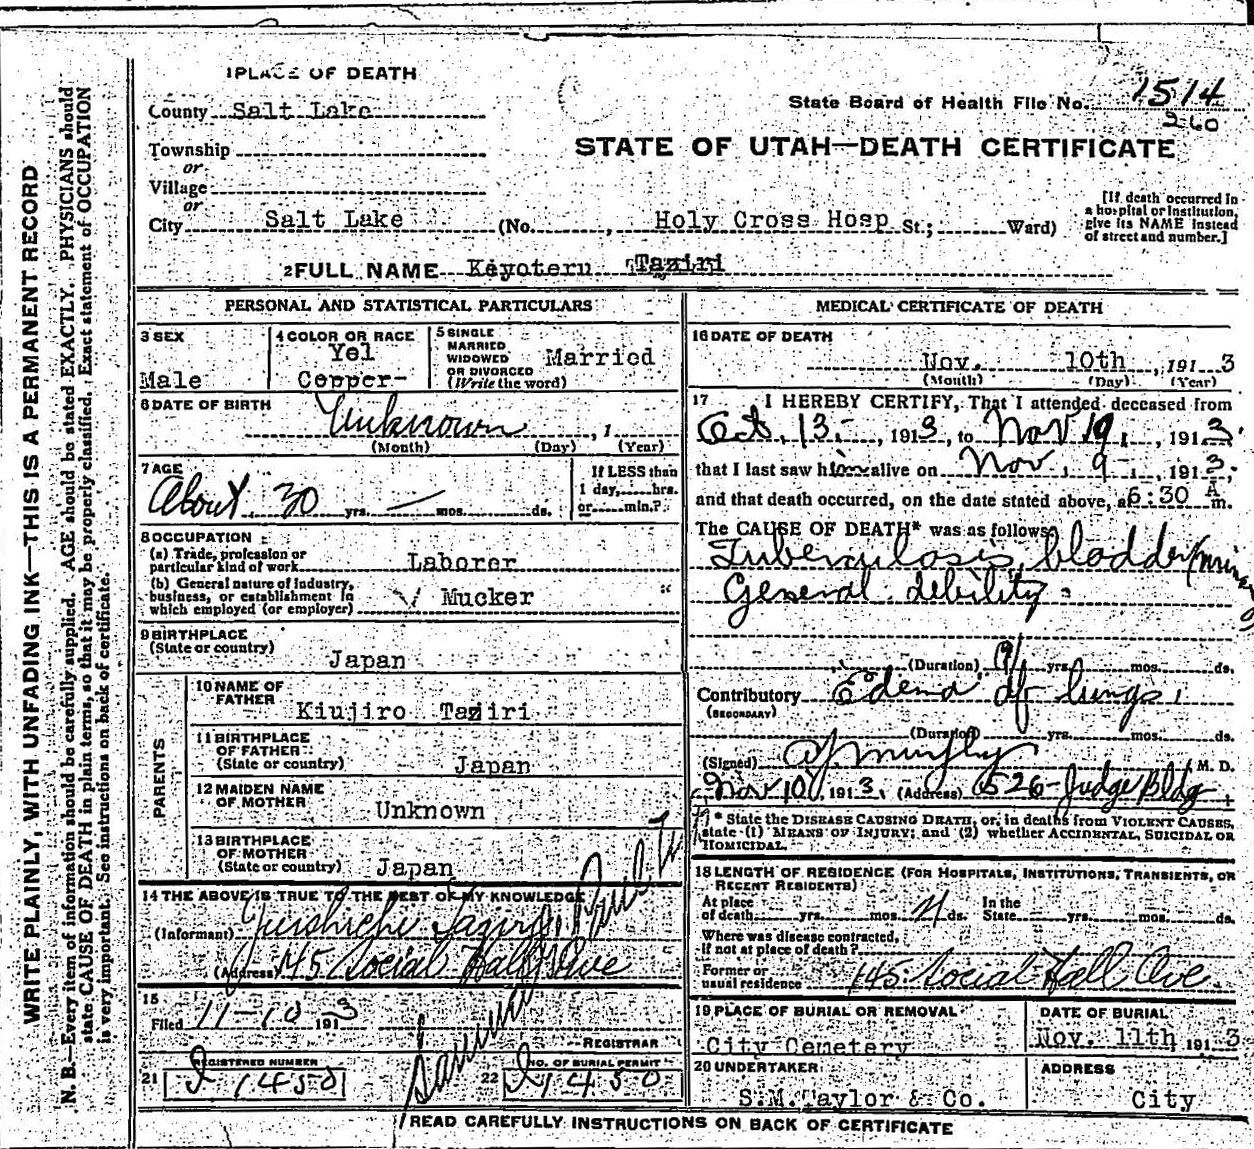 WRITE PLAINLY, WITH UNFADING INK—THIS IS A PERMANENT RECORD
N. B.—Every item of information should be carefully supplied. AGE should be stated EXACTLY. PHYSICIANS should
state CAUSE OF DEATH in plain terms, so that it may be properly classified. Exact statement of OCCUPATION
is very important. See instructions on back of certificate.
1 PLACE OF DEATH
County Salt Lake
Township
or
Village
or
City Salt Lake (No. , Holy Cross Hosp St.; Ward)
State Board of Health File No. 1514
260
STATE OF UTAH—DEATH CERTIFICATE
[If death occurred in
a hospital or institution,
give its NAME instead
of street and number.]
2 FULL NAME Keyoteru Taziri
PERSONAL AND STATISTICAL PARTICULARS
3 SEX
Male
4 COLOR OR RACE
Yel
Copper-
5 SINGLE
MARRIED
WIDOWED
OR DIVORCED
(Write the word)
Married
6 DATE OF BIRTH
Unknown , 1
(Month) (Day) (Year)
7 AGE
About 30 yrs. — mos. ds.
If LESS than
1 day, hrs.
or min.?
8 OCCUPATION
(a) Trade, profession or
particular kind of work Laborer
(b) General nature of industry,
business, or establishment in
which employed (or employer) Mucker "
9 BIRTHPLACE
(State or country)
Japan
PARENTS
10 NAME OF
FATHER
Kiujiro Taziri
11 BIRTHPLACE
OF FATHER
(State or country) Japan
12 MAIDEN NAME
OF MOTHER
Unknown
13 BIRTHPLACE
OF MOTHER
(State or country) Japan
14 THE ABOVE IS TRUE TO THE BEST OF MY KNOWLEDGE
(Informant)
(Address) 145 Social Hall Ave
15
Filed 11-10 1913
REGISTRAR
21 REGISTERED NUMBER
1450
22 NO. OF BURIAL PERMIT
1450
MEDICAL CERTIFICATE OF DEATH
16 DATE OF DEATH
Nov. 10th , 1913
(Month) (Day) (Year)
17 I HEREBY CERTIFY, That I attended deceased from
Oct. 13 , 1913, to Nov 10, , 1913,
that I last saw him alive on Nov. 9 , 1913,
and that death occurred, on the date stated above, at 6:30 A m.
The CAUSE OF DEATH* was as follows:
Tuberculosis, bladder
General debility
(Duration) yrs. mos. ds.
Contributory Edema of lungs
(SECONDARY)
(Duration) yrs. mos. ds.
(Signed) Murphy M. D.
Nov 10, 1913 (Address) 526 Judge Bldg
* State the DISEASE CAUSING DEATH, or, in deaths from VIOLENT CAUSES,
state (1) MEANS OF INJURY; and (2) whether ACCIDENTAL, SUICIDAL OR
HOMICIDAL.
18 LENGTH OF RESIDENCE (FOR HOSPITALS, INSTITUTIONS, TRANSIENTS, OR
RECENT RESIDENTS)
At place
of death yrs. mos. ds.
In the
State yrs. mos. ds.
Where was disease contracted,
if not at place of death?
Former or
usual residence 145 Social Hall Ave.
19 PLACE OF BURIAL OR REMOVAL
City Cemetery
DATE OF BURIAL
Nov. 11th 1913
20 UNDERTAKER
S.M. Taylor & Co.
ADDRESS
City
READ CAREFULLY INSTRUCTIONS ON BACK OF CERTIFICATE